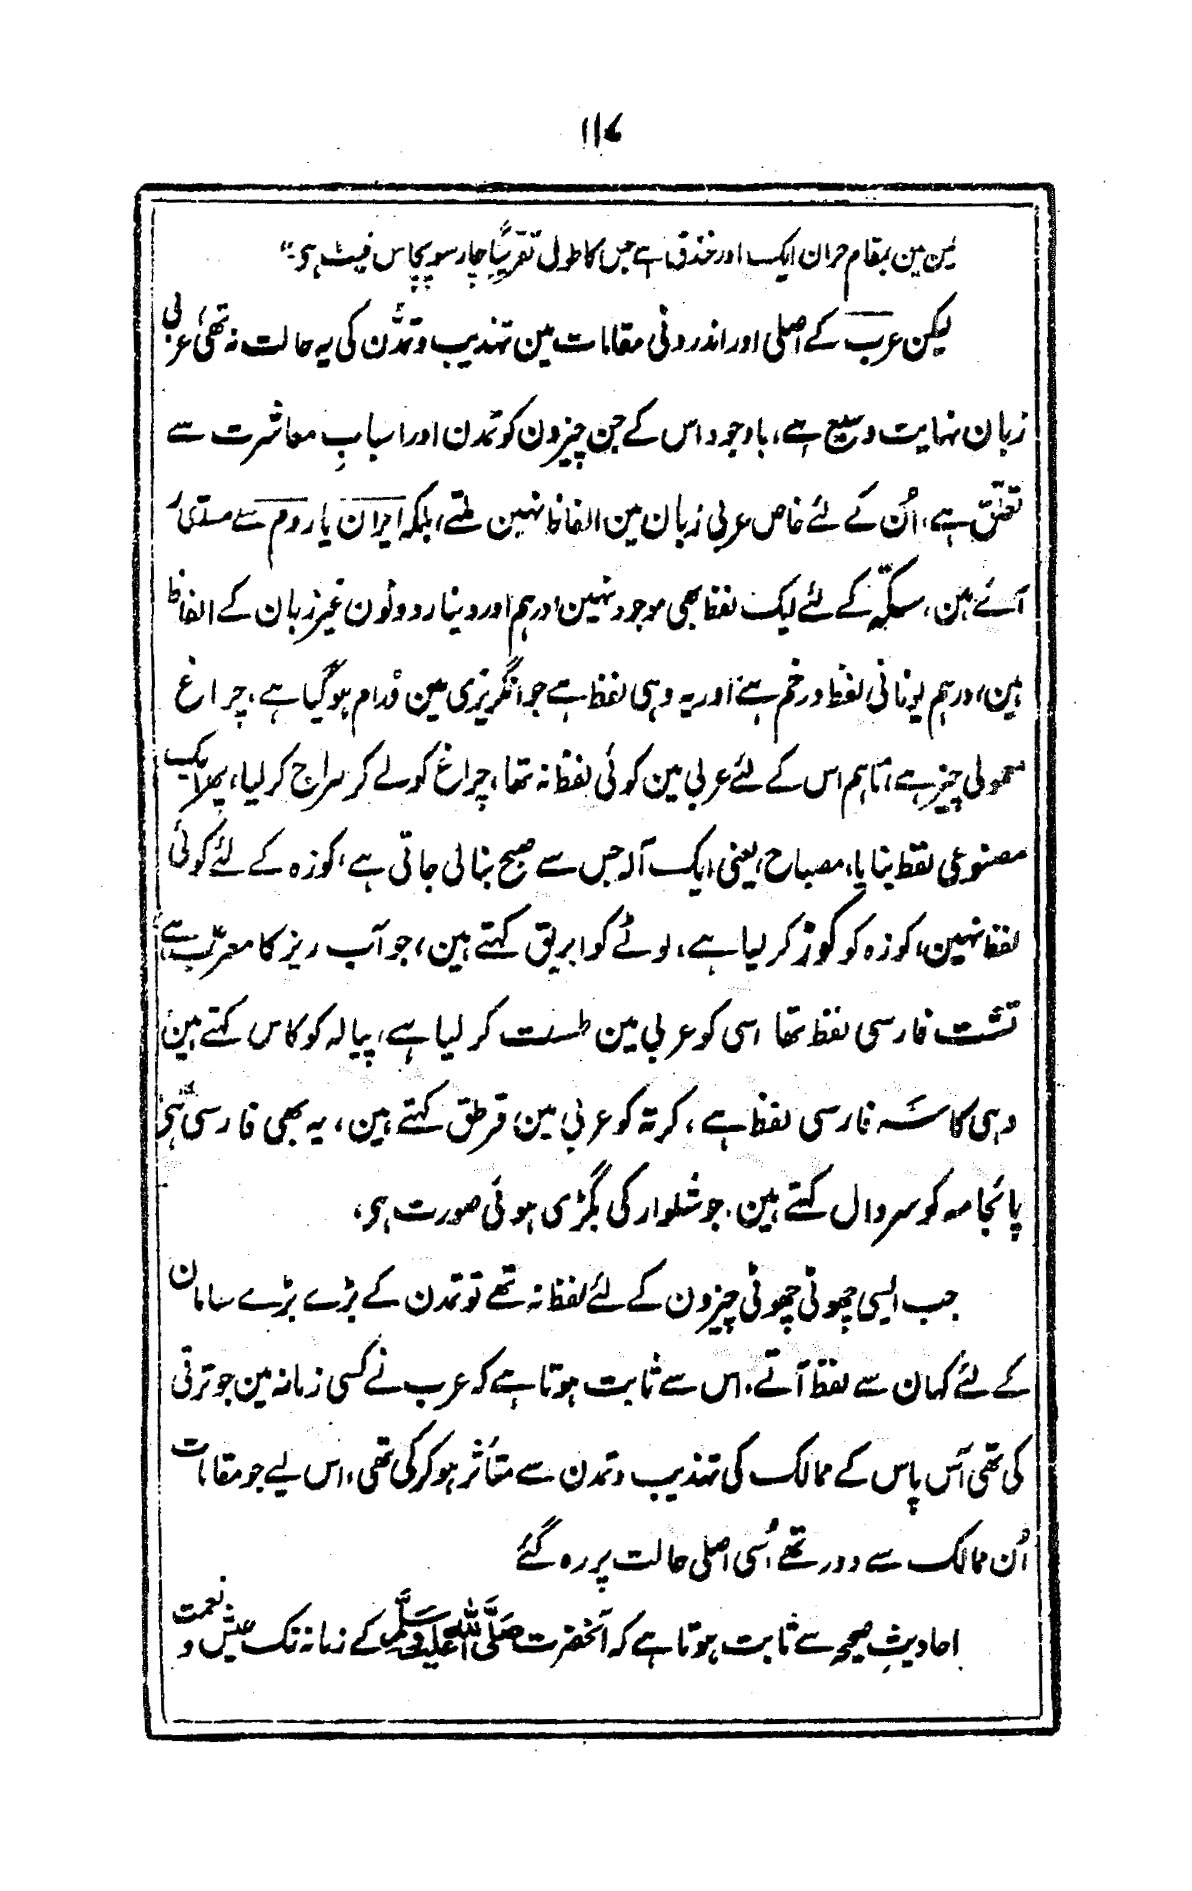 ۱۱۷
یمن مین بمقام حران ایک اور خندق ہے جس کا طول تقریبًا چار سو پچاس فیٹ ہی۔"
لیکن عرب کے اصلی اور اندرونی مقامات مین تہذیب و تمدّن کی یہ حالت نہ تھی، عربی
زبان نہایت وسیع ہے، باوجود اس کے جن چیزون کو تمدن اور اسبابِ معاشرت سے
تعلق ہے، اُن کے لئے خاص عربی زبان مین الفاظ نہین ملتے، بلکہ ایران یا روم سے مستعار
آئے ہین، سکّہ کے لئے ایک لفظ بھی موجود نہین، درہم اور دینار دونون غیر زبان کے الفاظ
ہین، درہم یونانی لفظ درخم ہے، اور یہ وہی لفظ ہے جو انگریزی مین ڈرام ہو گیا ہے، چراغ
معمولی چیز ہے، تاہم اس کے لئے عربی مین کوئی لفظ نہ تھا، چراغ کو لے کر سراج کر لیا، پھر ایک
مصنوعی لفظ بنایا، مصباح، یعنی ایک آلہ جس سے صبح بنالی جاتی ہے، کوزہ کے لئے کوئی
لفظ نہین، کوزہ کو کوز کر لیا ہے، لوٹے کو ابریق کہتے ہین، جو آب ریز کا معرّب ہے
تشت فارسی لفظ تھا اسی کو عربی مین طست کر لیا ہے، پیالہ کو کاس کہتے ہین،
وہی کاسہ فارسی لفظ ہے، کرتہ کو عربی مین قرطق کہتے ہین، یہ بھی فارسی ہی
پائجامہ کو سروال کہتے ہین، جو شلوار کی بگڑی ہوئی صورت ہی،
جب ایسی چھوٹی چھوٹی چیزون کے لئے لفظ نہ تھے تو تمدن کے بڑے بڑے سامان
کے لئے کہان سے لفظ آتے، اس سے ثابت ہوتا ہے کہ عرب نے کسی زمانہ مین جو ترقی
کی تھی آس پاس کے ممالک کی تہذیب و تمدن سے متأثر ہو کر کی تھی، اس لیے جو مقامات
اُن ممالک سے دور تھے اُسی اصلی حالت پر رہ گئے
احادیثِ صحیحہ سے ثابت ہوتا ہے کہ آنحضرت صَلَّی اللہ علیہ وسلَّم کے زمانہ تک عیش و نعمت